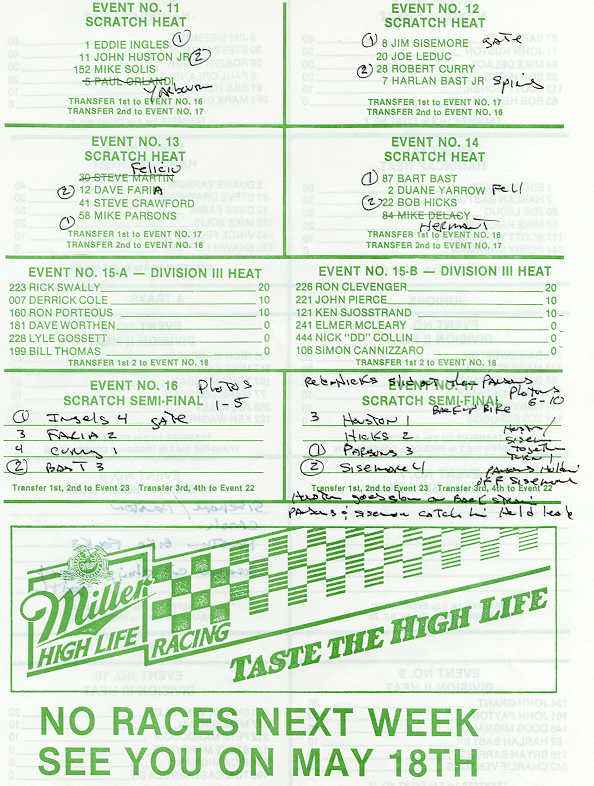 EVENT NO. 11
SCRATCH HEAT
1 EDDIE INGLES 1
11 JOHN HUSTON JR 2
152 MIKE SOLIS
5 PAUL ORLANDI
Yarbourn
TRANSFER 1st to EVENT NO. 16
TRANSFER 2nd to EVENT NO. 17
EVENT NO. 12
SCRATCH HEAT
1 8 JIM SISEMORE gate
20 JOE LEDUC
2 28 ROBERT CURRY
7 HARLAN BAST JR Spins
TRANSFER 1st to EVENT NO. 17
TRANSFER 2nd to EVENT NO. 16
EVENT NO. 13
SCRATCH HEAT
Felicio
30 STEVE MARTIN
2 12 DAVE FARIA
41 STEVE CRAWFORD
1 58 MIKE PARSONS
TRANSFER 1st to EVENT NO. 17
TRANSFER 2nd to EVENT NO. 16
EVENT NO. 14
SCRATCH HEAT
1 87 BART BAST
2 DUANE YARROW Fell
2 22 BOB HICKS
84 MIKE DELACY
Herman T
TRANSFER 1st to EVENT NO. 16
TRANSFER 2nd to EVENT NO. 17
EVENT NO. 15-A — DIVISION III HEAT
223 RICK SWALLY 20
007 DERRICK COLE 10
160 RON PORTEOUS 10
181 DAVE WORTHEN 0
228 LYLE GOSSETT 0
199 BILL THOMAS 0
TRANSFER 1st 2 to EVENT NO. 18
EVENT NO. 15-B — DIVISION III HEAT
226 RON CLEVENGER 20
221 JOHN PIERCE 10
121 KEN SJOSSTRAND 10
241 ELMER MCLEARY 0
444 NICK "DD" COLLIN 0
106 SIMON CANNIZZARO 0
TRANSFER 1st 2 to EVENT NO. 18
EVENT NO. 16
SCRATCH SEMI-FINAL
Photos
1-5
1 Ingels 4 gate
3 FARIA 2
4 Curry 1
2 BAST 3
Transfer 1st, 2nd to Event 23 Transfer 3rd, 4th to Event 22
Parsons
EVENT NO. 17
SCRATCH SEMI-FINAL
Photos
6-10
Backup Bike
3 Huston 1
HICKS 2
1 PARSONS 3
2 SISEMORE 4
Together
Turn 1
Parsons
OFF Sisemore
Transfer 1st, 2nd to Event 23 Transfer 3rd, 4th to Event 22
Huston goes down on Back
Parsons & Sisemore catch him Held
Miller
HIGH LIFE
RACING
TASTE THE HIGH LIFE
NO RACES NEXT WEEK
SEE YOU ON MAY 18TH